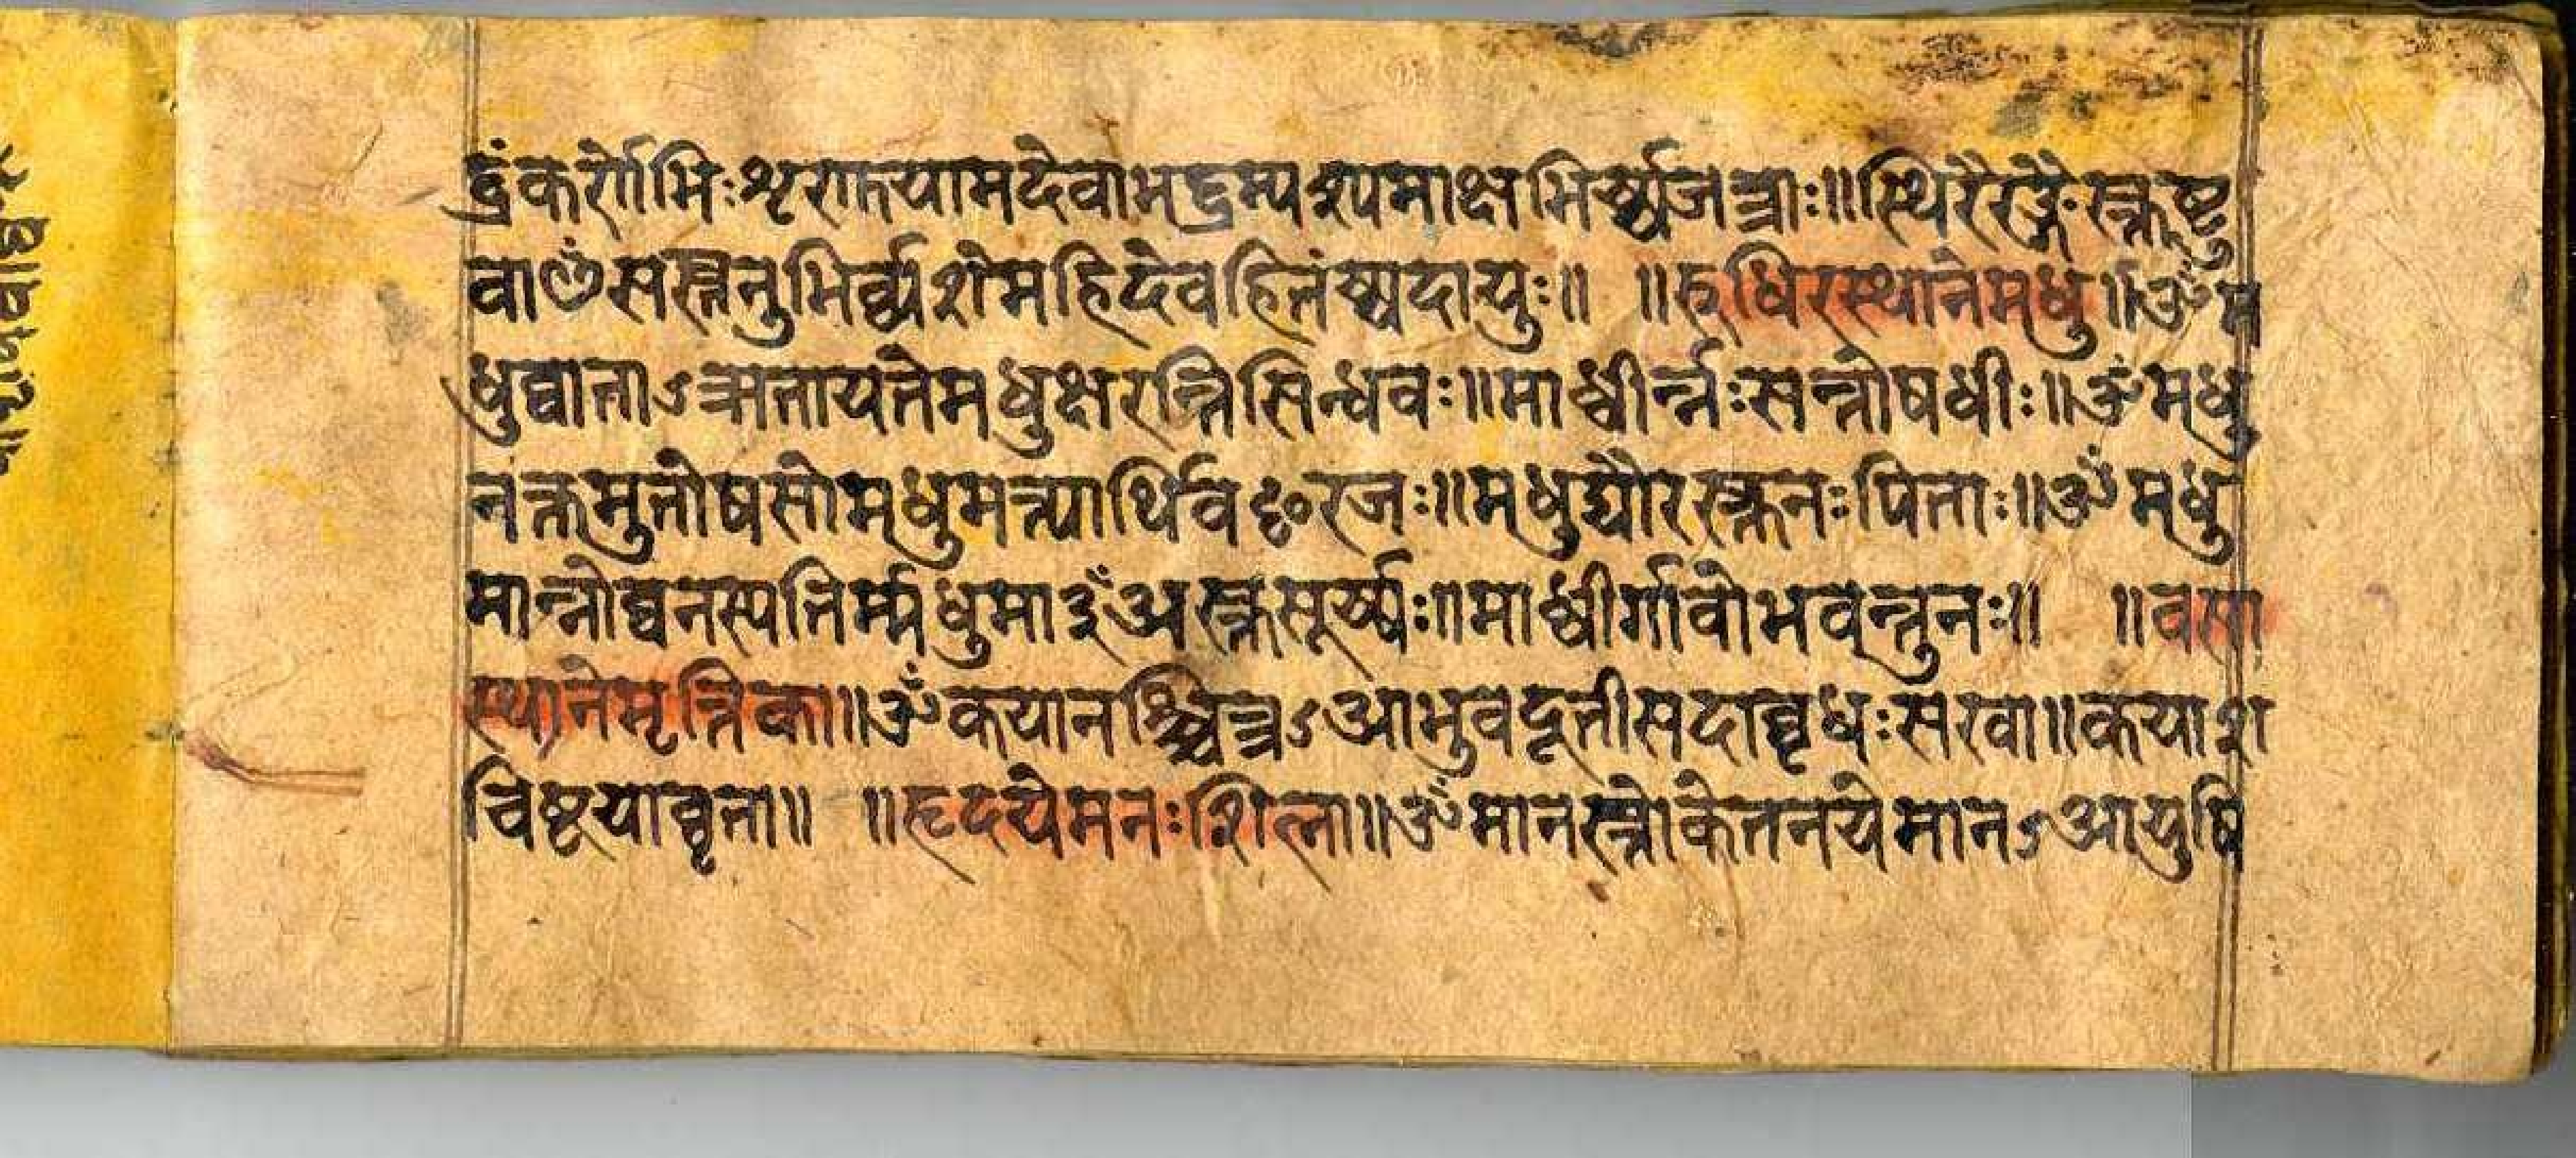 द्रंकर्णेभिःशृणुयामदेवाभद्रम्पश्येमाक्षभिर्य्यजत्राः॥स्थिरैरङ्गैस्तुष्टु
वाᳪंसस्तनूभिर्व्यशेमहिदेवहितंय्यदायुः॥ ॥रुधिरस्थानेमधु॥ॐम
धुव्वाताऽऋतायतेमधुक्षरन्तिसिन्धवः॥माध्वीर्न्नःसन्त्वोषधीः॥ॐमधु
नक्तमुतोषसोमधुमत्पार्थिवᳪरजः॥मधुद्यौरस्तुनःपिताः॥ॐमधु
मान्नोव्वनस्पतिर्म्मधुमा३ँअस्तुसूर्य्यः॥माध्वीर्गावोभवन्तुनः॥ ॥वसा
स्थानेमृत्तिका॥ॐकयानश्चित्रऽआभुवदूतीसदाव्वृधःसखा॥कयाश
चिष्टयाव्वृता॥ ॥हृदयेमनःशिला॥ॐमानस्तोकेतनयेमानऽआयुषि